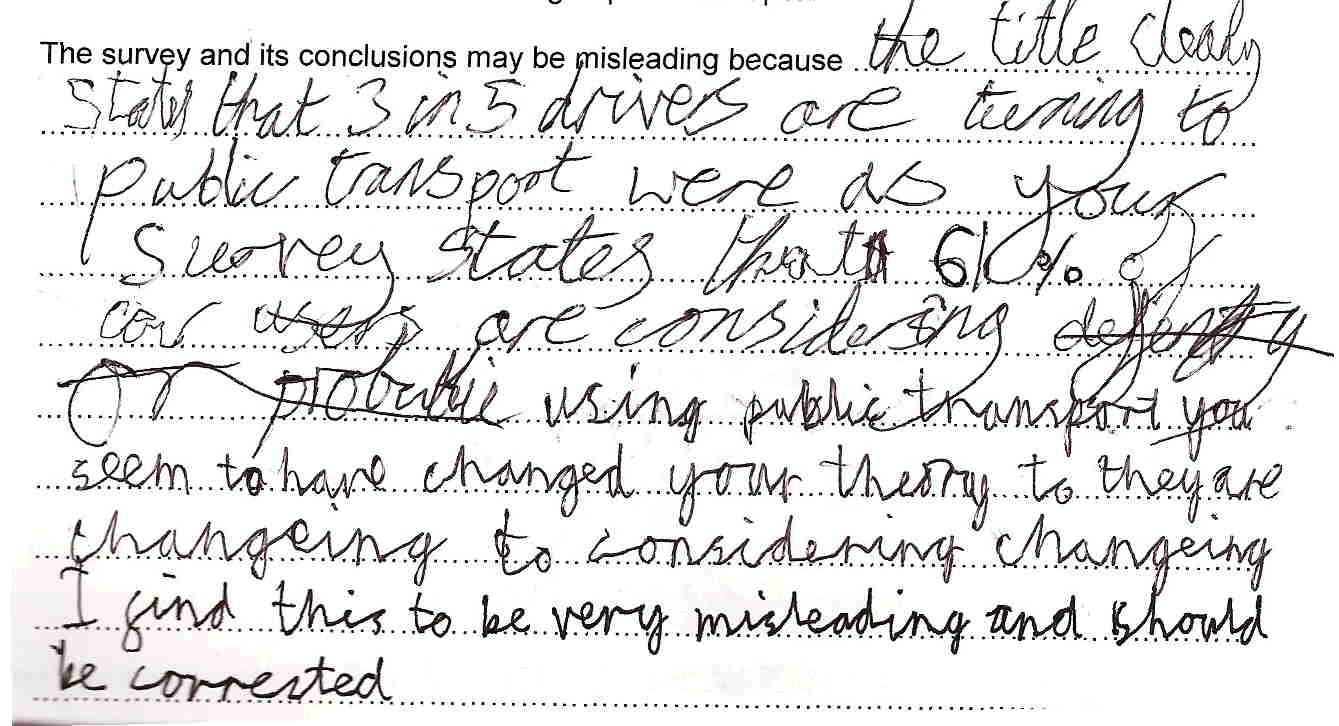 The survey and its conclusions may be misleading because the title clealy
States that 3 in 5 drivers are turning to
public transport were as your
Survey states that 61% of
car users are considering defentty
or probablie using public transport you
seem to have changed your theory to they are
changeing to considering changeing
I find this to be very misleading and should
be corrected